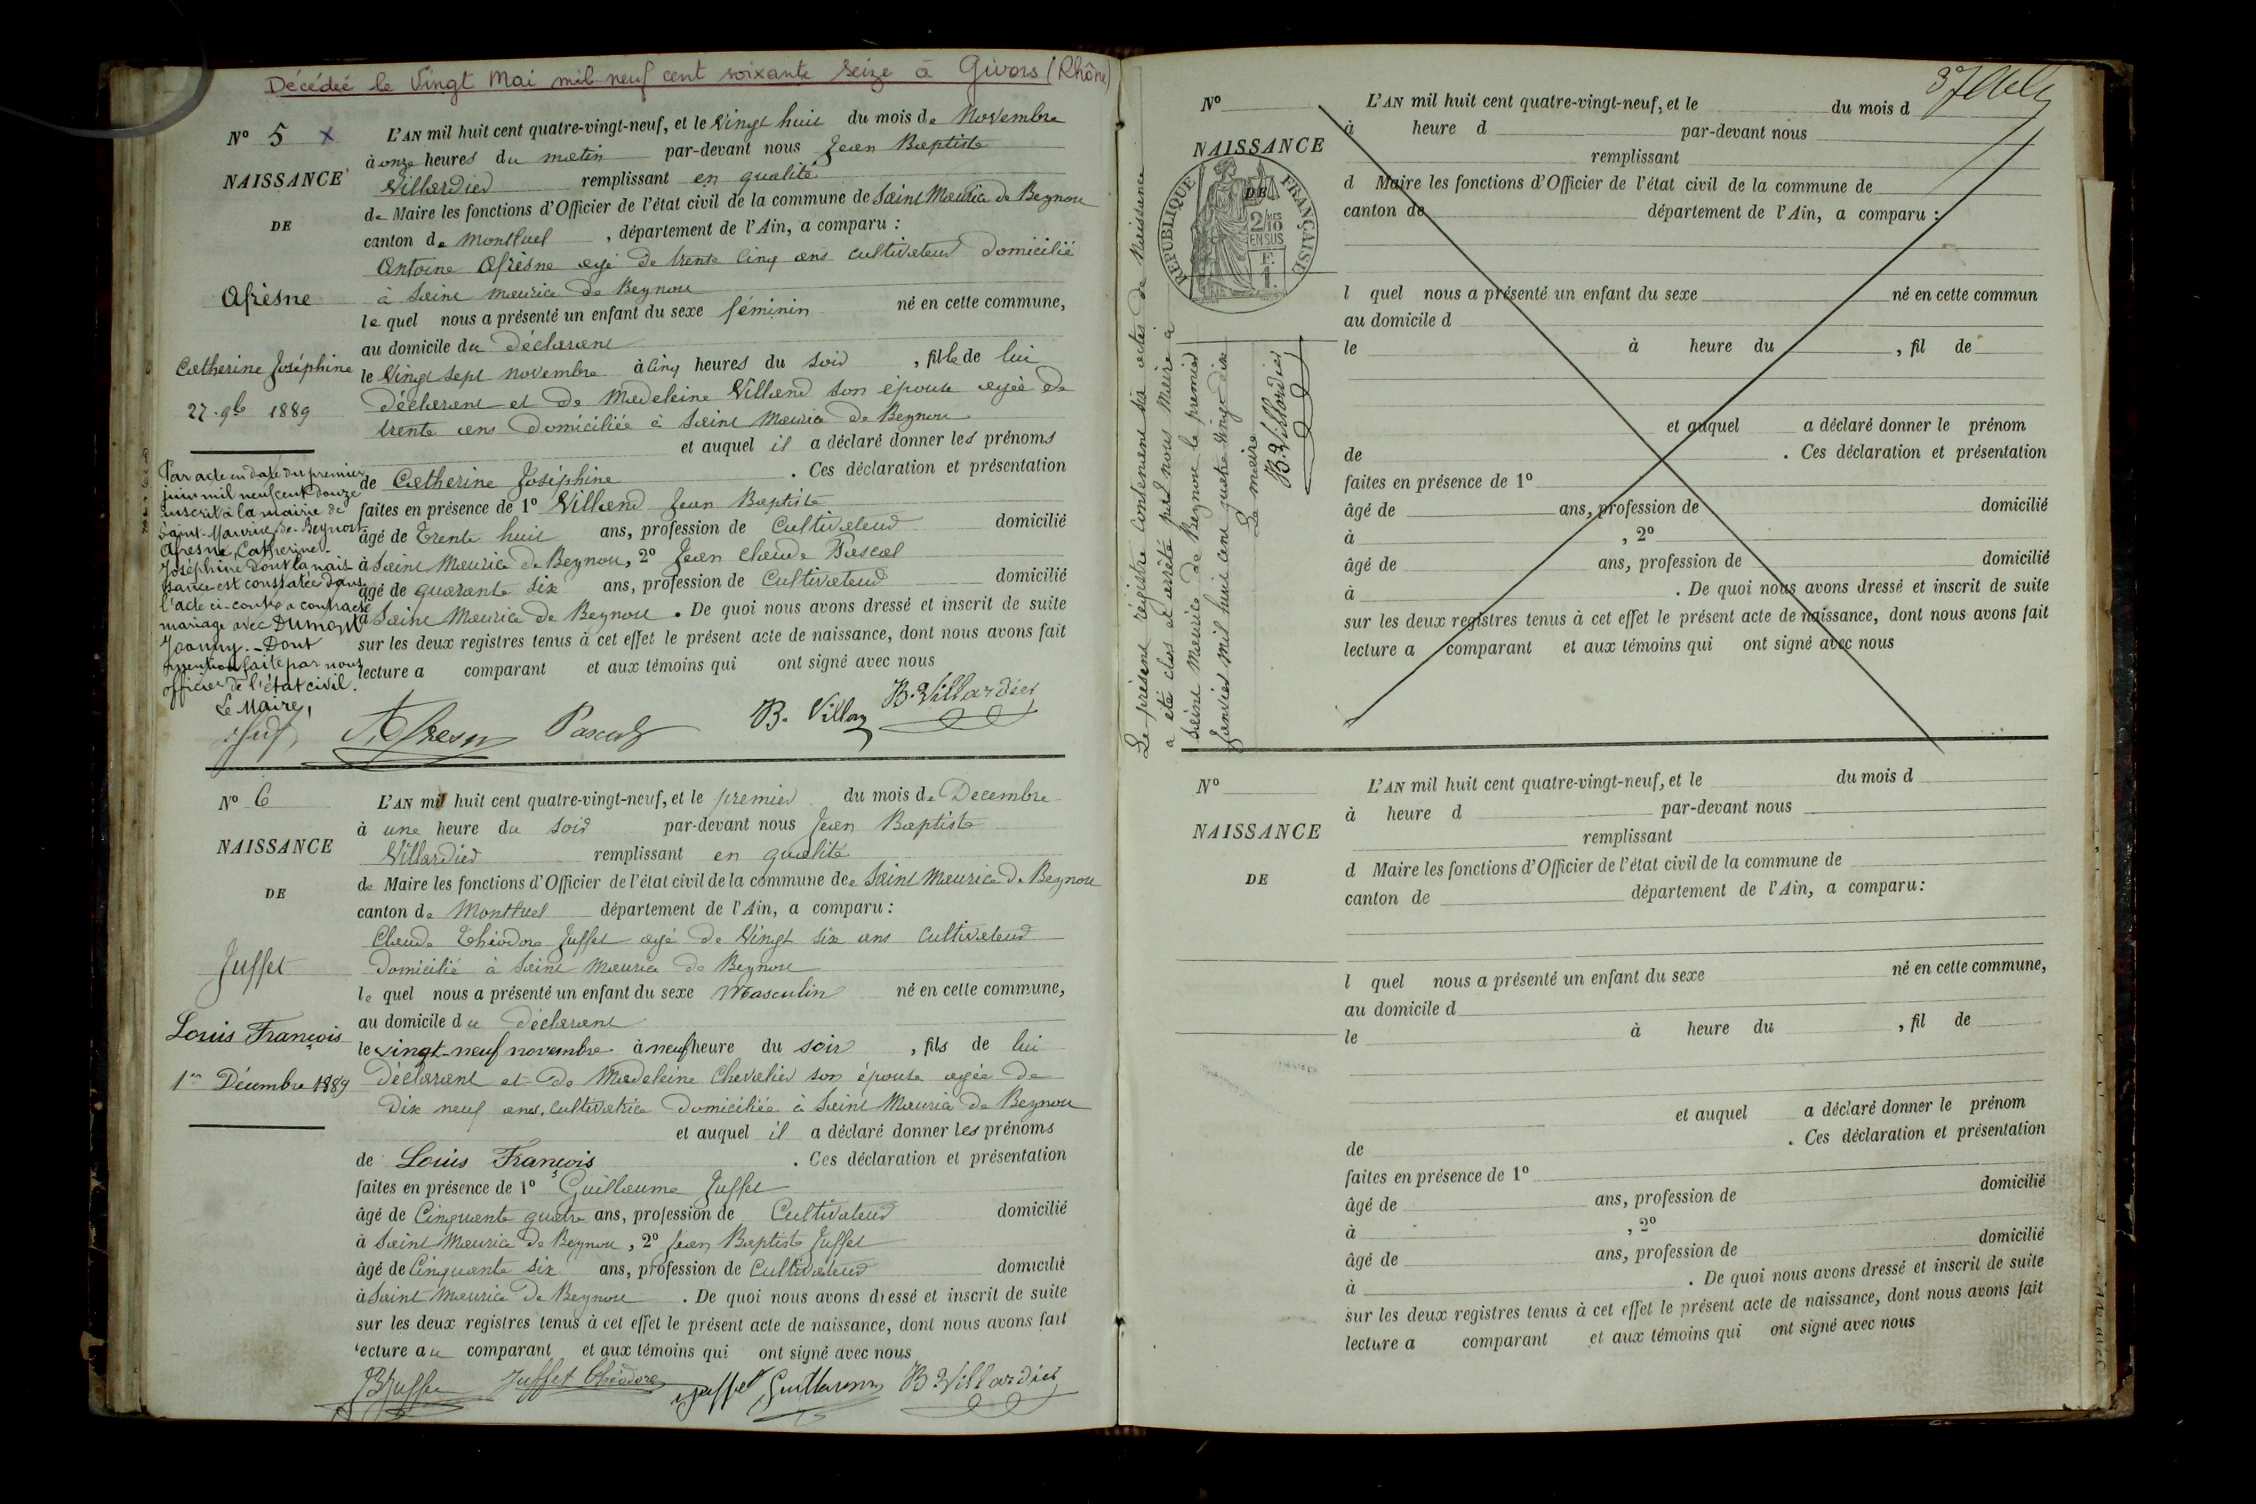 Décédée le Vingt Mai mil neuf cent soixante seize à Givors (Rhône)
N° 5 x
NAISSANCE
DE
Afrèsne
Catherine Joséphine
27 9bre 1889
Par acte en date du premier
juin mil neuf cent douze
inscrit à la mairie de
Saint-Maurice-de-Beynost
Afresne, Catherine
Joséphine dont la nais
sance est constatée dans
l'acte ci-contre a contracté
mariage avec Dumont
Joanny. - Dont
mention faite par nous
officier de l'état civil.
Le Maire,
L'AN mil huit cent quatre-vingt-neuf, et le Vingt huit du mois de Novembre
à onze heures du matin par-devant nous Jean Baptiste
Villardier remplissant en qualité
de Maire les fonctions d'Officier de l'état civil de la commune de Saint Maurice de Beynou
canton de Montluel , département de l'Ain, a comparu :
Antoine Afrèsne agé de trente cinq ans cultivateur domicilié
à Saint Maurice de Beynou
le quel nous a présenté un enfant du sexe féminin né en cette commune,
au domicile du déclarant
le Vingt sept novembre à cinq heures du soir , fille de lui
déclarant et de Madeleine Villand son épouse agée de
trente ans domiciliée à Saint Maurice de Beynou
et auquel il a déclaré donner les prénoms
de Catherine Joséphine . Ces déclaration et présentation
faites en présence de 1° Villand Jean Baptiste
âgé de Trente huit ans, profession de Cultivateur domicilié
à Saint Maurice de Beynou, 2° Jean Claude Pascal
âgé de quarante six ans, profession de Cultivateur domicilié
à Saint Maurice de Beynou . De quoi nous avons dressé et inscrit de suite
sur les deux registres tenus à cet effet le présent acte de naissance, dont nous avons fait
lecture a comparant et aux témoins qui ont signé avec nous
B. Villardier
N° 6
NAISSANCE
DE
Juffet
Louis François
1er Décembre 1889
L'AN mil huit cent quatre-vingt-neuf, et le premier du mois de Decembre
à une heure du soir par-devant nous Jean Baptiste
Villardier remplissant en qualité
de Maire les fonctions d'Officier de l'état civil de la commune dee Saint Maurice de Beynou
canton de Montluel département de l'Ain, a comparu :
Claude Théodore Juffet agé de Vingt six ans cultivateur
domicilié à Saint Maurice de Beynou
le quel nous a présenté un enfant du sexe Masculin né en cette commune,
au domicile du déclarant
le vingt-neuf novembre à neuf heure du soir , fils de lui
déclarant et de Madeleine Chevalier son épouse agée de
dix neuf ans, cultivatrice domiciliée à Saint Maurice de Beynou
et auquel il a déclaré donner les prénoms
de Louis François . Ces déclaration et présentation
faites en présence de 1° Guillaume Juffet
âgé de Cinquante quatre ans, profession de Cultivateur domicilié
à Saint Maurice de Beynou, 2° Jean Baptiste Juffet
âgé de Cinquante six ans, profession de Cultivateur domicilié
à Saint Maurice de Beynou . De quoi nous avons dressé et inscrit de suite
sur les deux registres tenus à cet effet le présent acte de naissance, dont nous avons fait
lecture au comparant et aux témoins qui ont signé avec nous
Juffet Théodore Juffet Guillaume B Villardier
Le présent régistre contenant six actes de Naissance
a été clos et arrêté par nous Maire à
Saint Maurice de Beynou le premier
Janvier mil huit cent quatre vingt dix
Le maire
B. Villardier
N°
NAISSANCE
DE
RÉPUBLIQUE FRANÇAISE
2/10 MES
EN SUS
F.
1.
L'AN mil huit cent quatre-vingt-neuf, et le du mois d
à heure d par-devant nous
remplissant
d Maire les fonctions d'Officier de l'état civil de la commune de
canton de département de l'Ain, a comparu :
l quel nous a présenté un enfant du sexe né en cette commun
au domicile d
le à heure du , fil de
et auquel a déclaré donner le prénom
de . Ces déclaration et présentation
faites en présence de 1°
âgé de ans, profession de domicilié
à , 2°
âgé de ans, profession de domicilié
à . De quoi nous avons dressé et inscrit de suite
sur les deux registres tenus à cet effet le présent acte de naissance, dont nous avons fait
lecture a comparant et aux témoins qui ont signé avec nous
N°
NAISSANCE
DE
L'AN mil huit cent quatre-vingt-neuf, et le du mois d
à heure d par-devant nous
remplissant
d Maire les fonctions d'Officier de l'état civil de la commune de
canton de département de l'Ain, a comparu :
l quel nous a présenté un enfant du sexe né en cette commune,
au domicile d
le à heure du , fil de
et auquel a déclaré donner le prénom
de . Ces déclaration et présentation
faites en présence de 1°
âgé de ans, profession de domicilié
à , 2°
âgé de ans, profession de domicilié
à . De quoi nous avons dressé et inscrit de suite
sur les deux registres tenus à cet effet le présent acte de naissance, dont nous avons fait
lecture a comparant et aux témoins qui ont signé avec nous